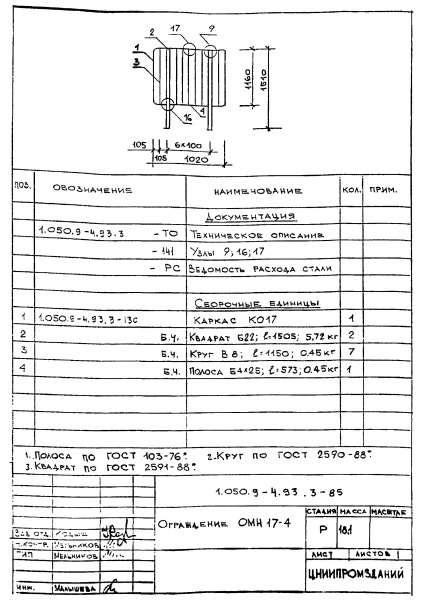 2 17 9
1
3
4 16
1160
1510
105 105 6х100
1020
ПОЗ. ОБОЗНАЧЕНИЕ НАИМЕНОВАНИЕ КОЛ. ПРИМ.
ДОКУМЕНТАЦИЯ
1.050.9-4.93.3 -ТО ТЕХНИЧЕСКОЕ ОПИСАНИЕ
-141 УЗЛЫ 9;16;17
-РС ВЕДОМОСТЬ РАСХОДА СТАЛИ
СБОРОЧНЫЕ ЕДИНИЦЫ
1 1.050.9-4.93.3-130 КАРКАС КО17 1
2 Б.Ч. КВАДРАТ Б22; ℓ=1505; 5,72кг 2
3 Б.Ч. КРУГ В 8; ℓ=1150; 0.45кг 7
4 Б.Ч. ПОЛОСА Б4х25; ℓ=573; 0.45кг 1
1. ПОЛОСА ПО ГОСТ 103-76*. 2. КРУГ ПО ГОСТ 2590-88*.
3. КВАДРАТ ПО ГОСТ 2591-88*.
1.050.9-4.93.3-85
ОГРАЖДЕНИЕ ОМН 17-4
СТАДИЯ МАССА МАСШТАБ
Р 18,1
ЛИСТ ЛИСТОВ 1
ЦНИИПРОМЗДАНИЙ
ЗАВ. ОТД.
Н.КОНТР. МЕЛЬНИКОВ
ГИП МЕЛЬНИКОВ
ИНЖ. МАЛЫШЕВА